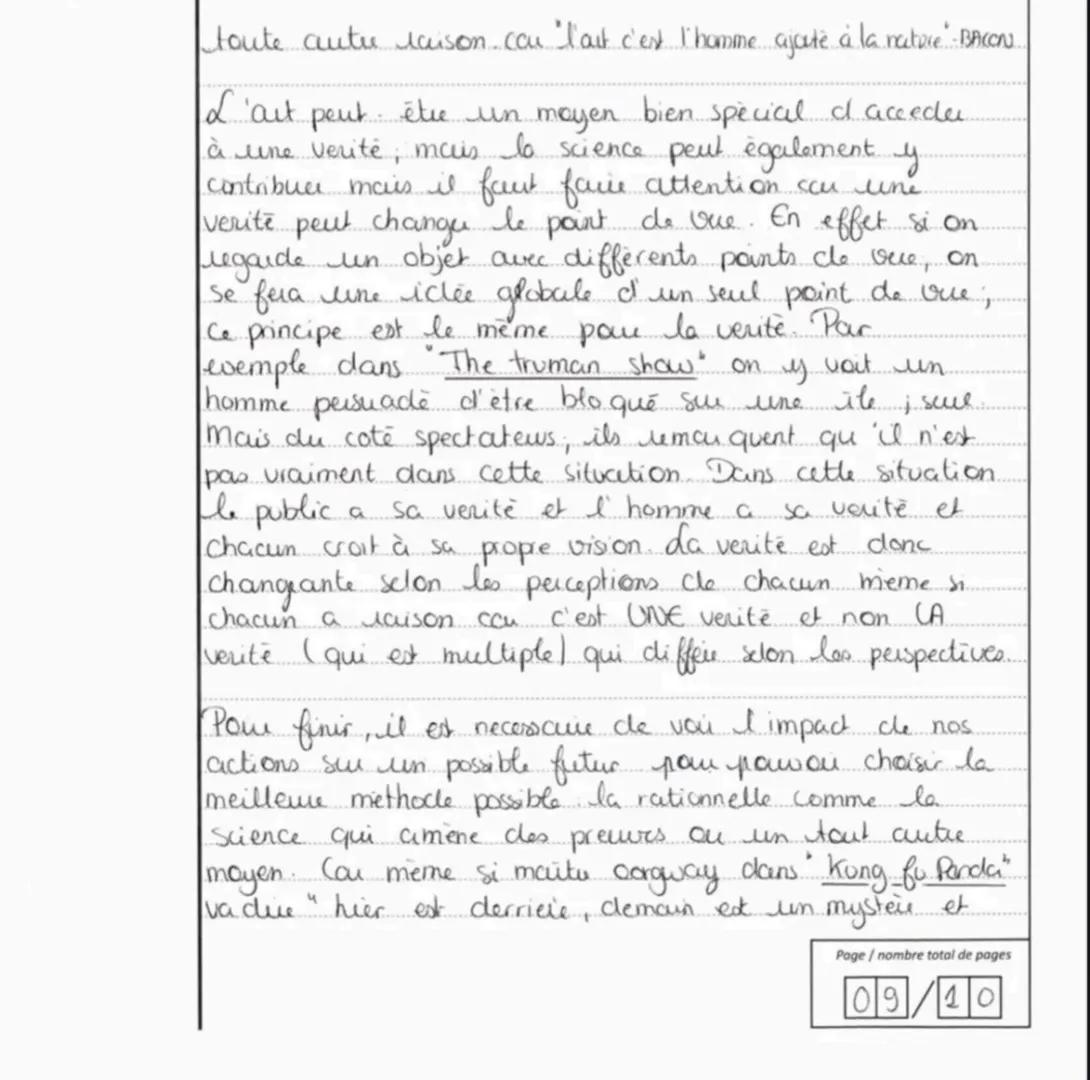 toute autre raison. car "l'art c'est l'homme ajouté à la nature" - BACON
L'art peut être un moyen bien spécial d'acceder
à une verité, mais la science peut également y
contribuer mais il faut faire attention car une
verité peut changer le point de vue. En effet si on
regarde un objet avec différents points de vue, on
se fera une idée globale d'un seul point de vue,
ce principe est le même pour la verité. Par
exemple dans "The truman show" on y voit un
homme persuadé d'être bloqué sur une ile, seul.
Mais du coté spectateurs, ils remarquent qu'il n'est
pas vraiment dans cette situation. Dans cette situation
le public a sa verité et l'homme a sa verité et
chacun croit à sa propre vision. La verité est donc
changeante selon les perceptions de chacun même si
chacun a raison car c'est UNE verité et non LA
verité (qui est multiple) qui diffère selon les perspectives.
Pour finir, il est necessaire de voir l'impact de nos
actions sur un possible futur pour pouvoir choisir la
meilleure méthode possible. la rationnelle comme la
science qui amène des preuves ou un tout autre
moyen. Car même si maitre oogway dans "Kung fu Panda"
va dire "hier est derriere, demain est un mystère et
Page / nombre total de pages
09/10